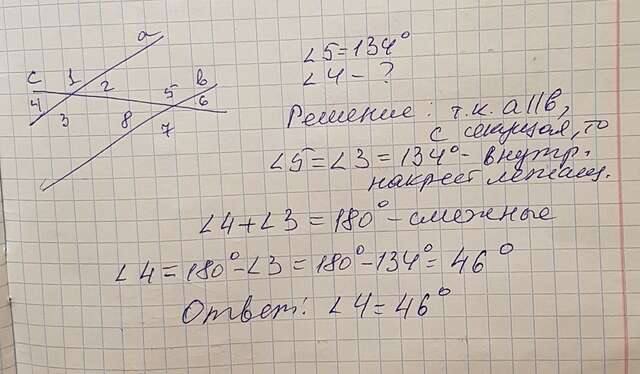 a
c 1 2 5 b
4 6
3 8 7
∠5=134°
∠4-?
Решение: т.к. a||b,
c секущая, то
∠5=∠3=134°- внутр.
накрест лежащ.
∠4+∠3=180°-смежные
∠4=180°-∠3=180°-134°=46°
Ответ: ∠4=46°